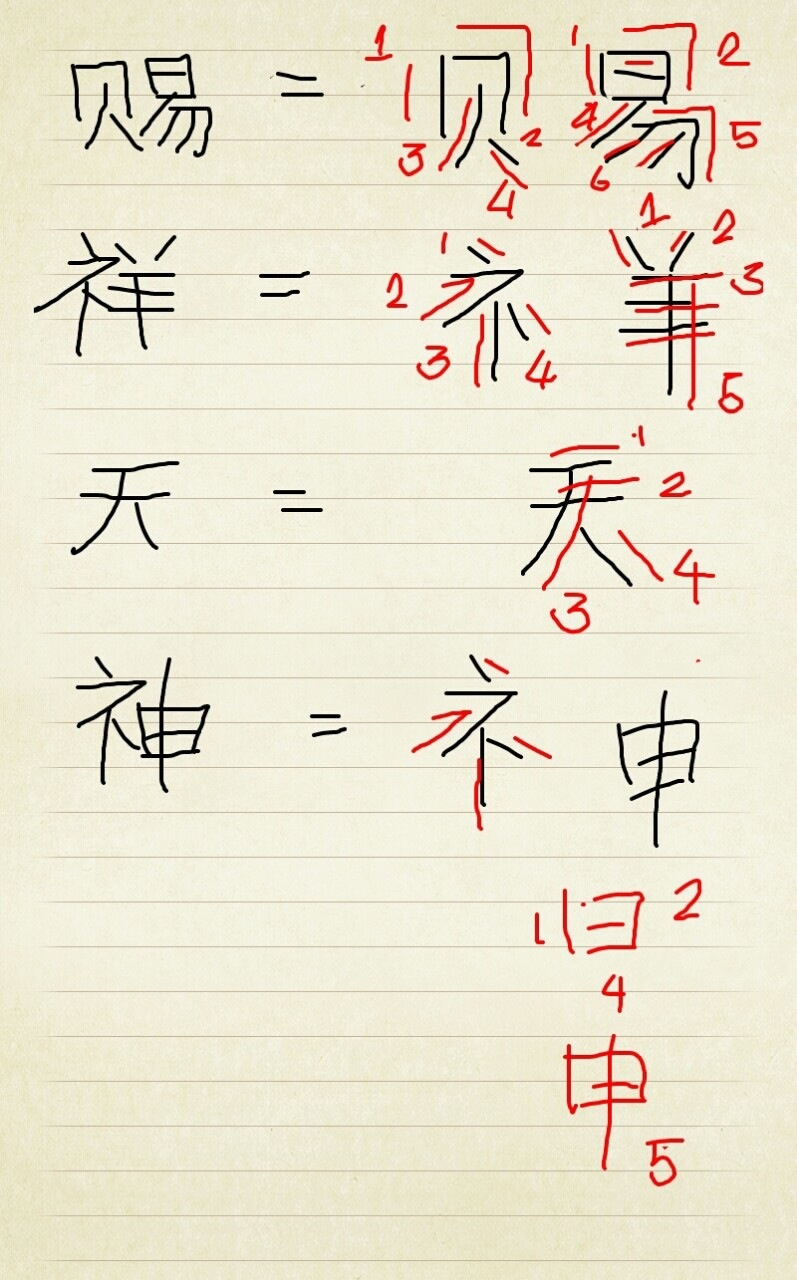 赐 = 1 贝 2 3 4 1 易 2 4 5 6
祥 = 1 2 礻 3 4 1 羊 2 3 5
天 = 天 1 2 3 4
神 = 礻 申
1 2
4
申 5